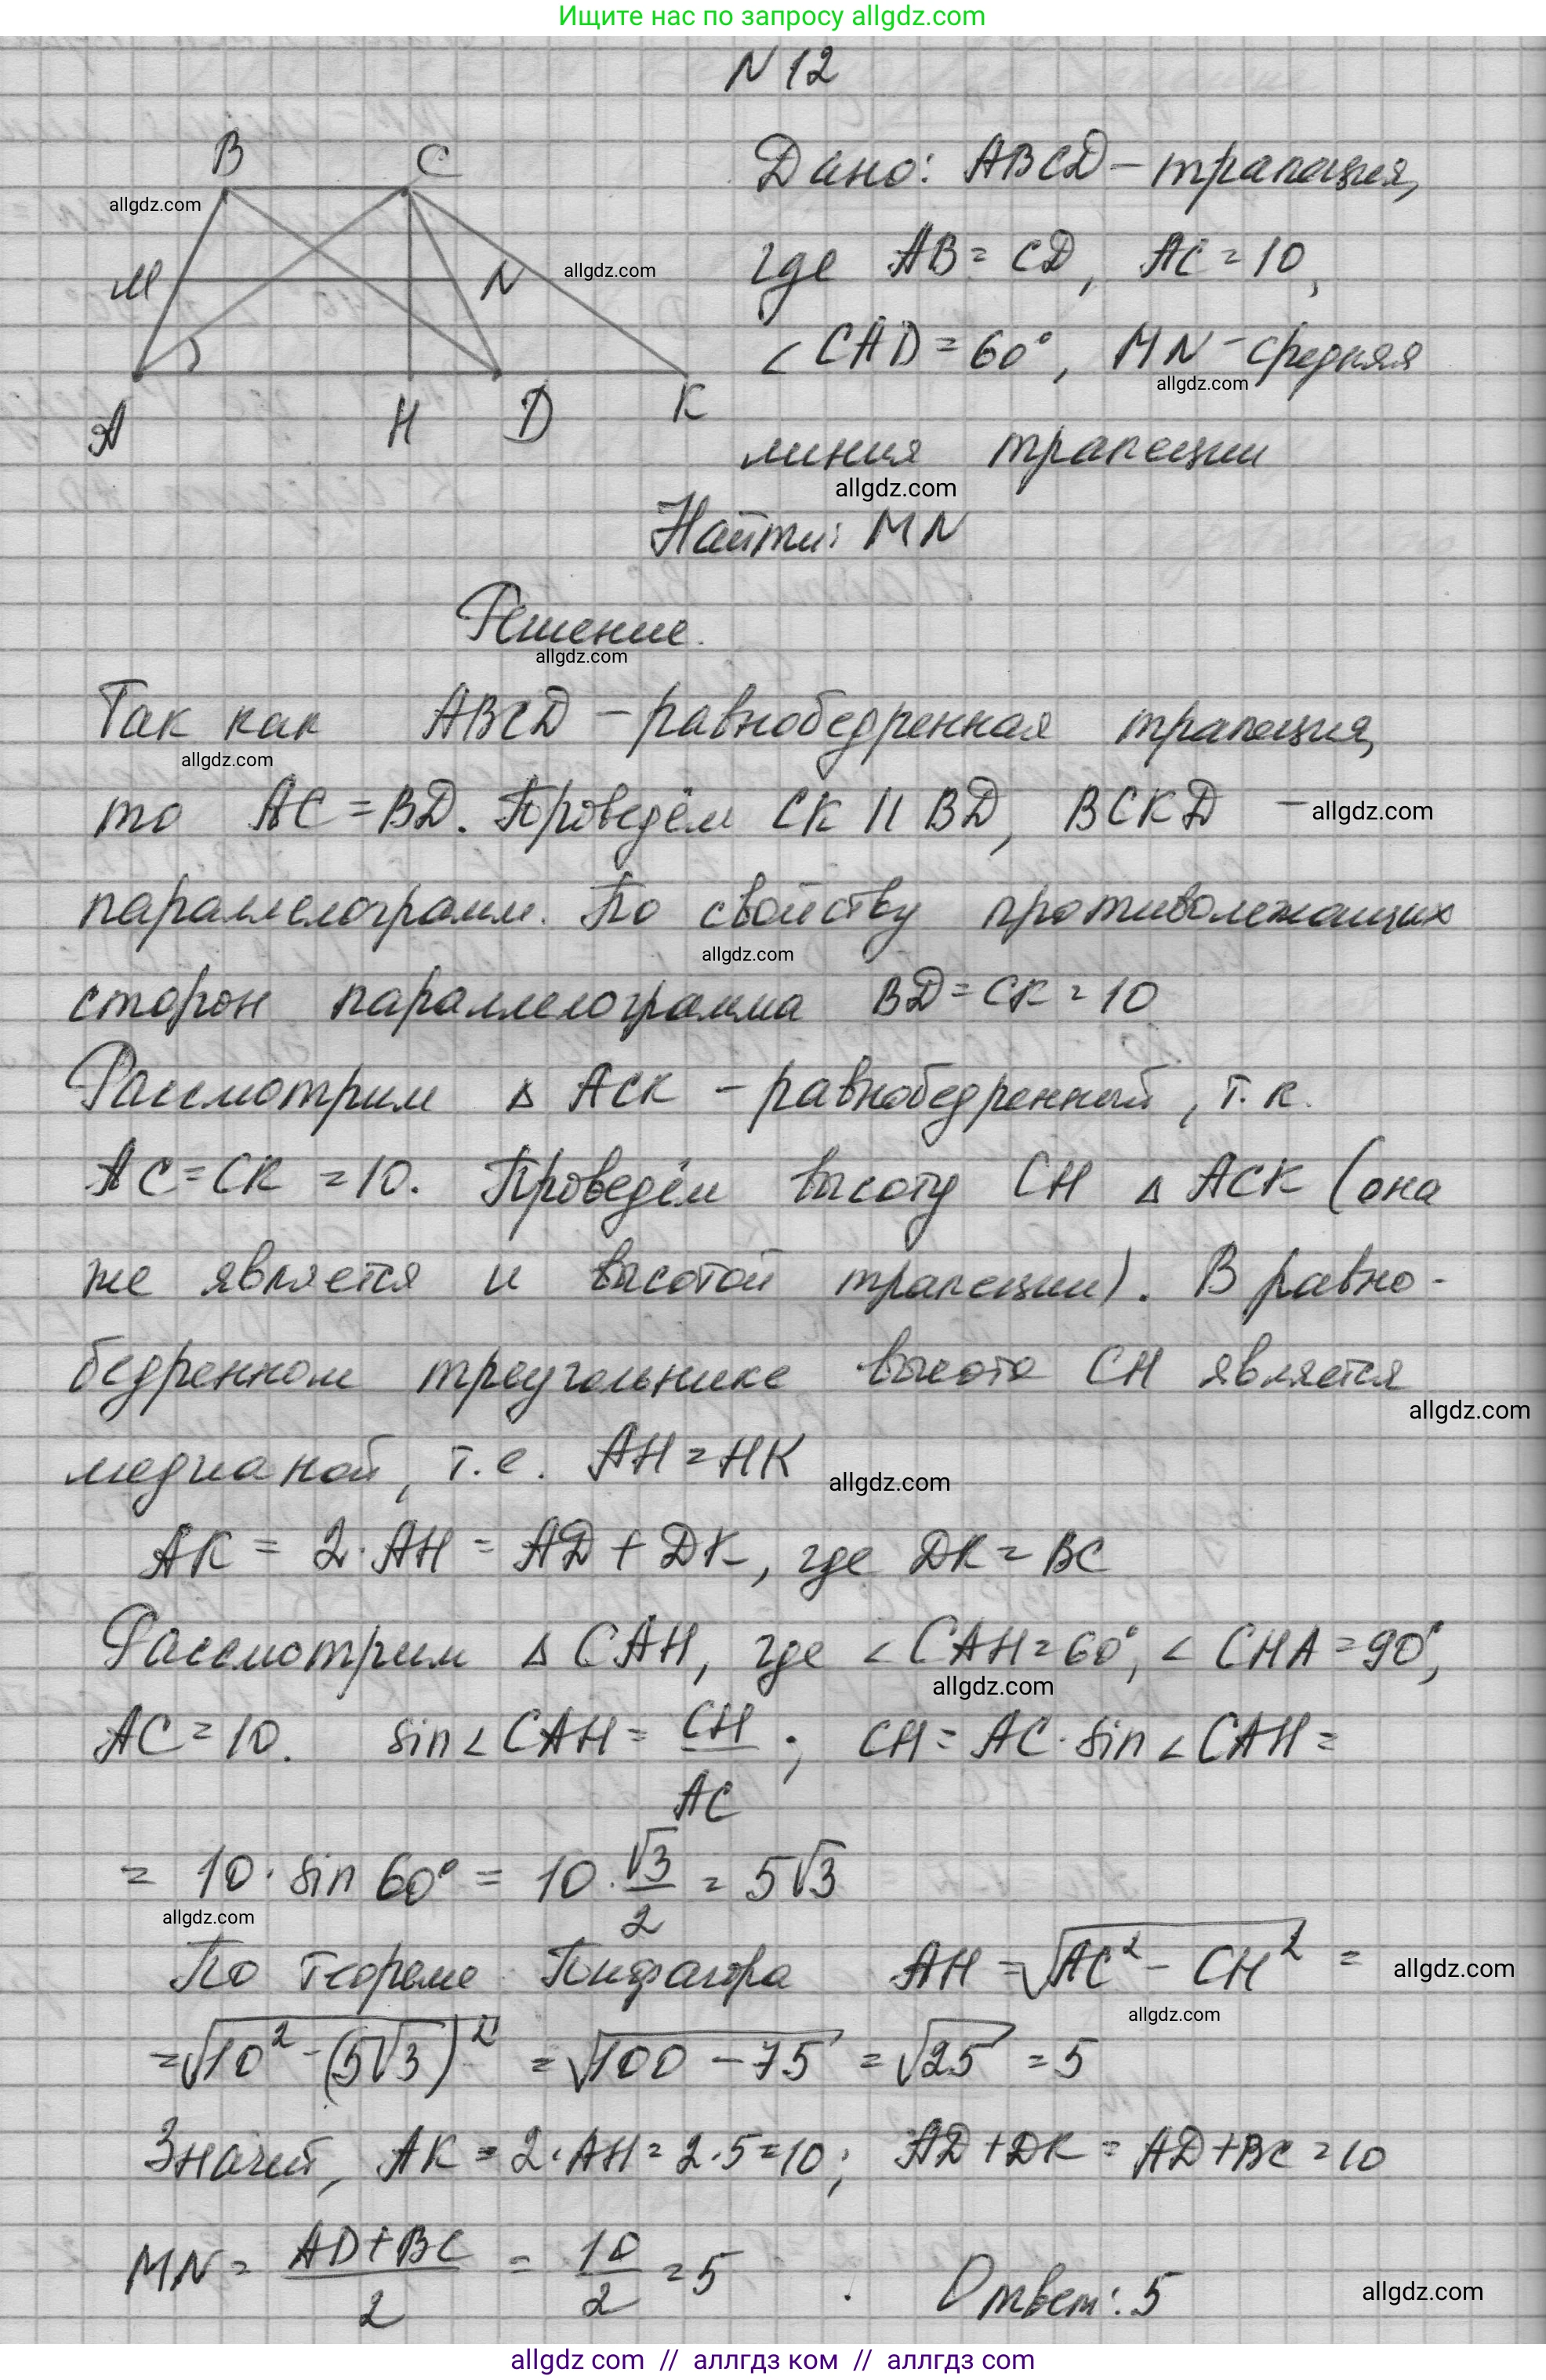 Ищите нас по запросу allgdz.com
N 12
B C
allgdz.com
M N
allgdz.com
A H D K
Дано: ABCD – трапеция,
где AB = CD, AC = 10,
∠CAD = 60°, MN – средняя
allgdz.com
линия трапеции
allgdz.com
Найти: MN
Решение.
allgdz.com
Так как ABCD – равнобедренная трапеция,
allgdz.com
то AC = BD. Проведём CK || BD, BCKD –
allgdz.com
параллелограмм. По свойству противолежащих
allgdz.com
сторон параллелограмма BD = CK = 10
Рассмотрим Δ ACK – равнобедренный, т.к.
AC = CK = 10. Проведём высоту CH Δ ACK (она
же является и высотой трапеции). В равно-
бедренном треугольнике высота CH является
allgdz.com
медианой, т.е. AH = HK
allgdz.com
AK = 2·AH = AD + DK, где DK = BC
Рассмотрим Δ CAH, где ∠CAH = 60°, ∠CHA = 90°,
allgdz.com
AC = 10. sin∠CAH = CH/AC ; CH = AC·sin∠CAH =
= 10·sin 60° = 10·√3/2 = 5√3
allgdz.com
По теореме Пифагора AH = √(AC² – CH²) =
allgdz.com
allgdz.com
= √(10² – (5√3)²) = √(100 – 75) = √25 = 5
Значит, AK = 2·AH = 2·5 = 10; AD + DK = AD + BC = 10
MN = (AD + BC)/2 = 10/2 = 5 . Ответ: 5
allgdz.com
allgdz com // аллгдз ком // аллгдз com